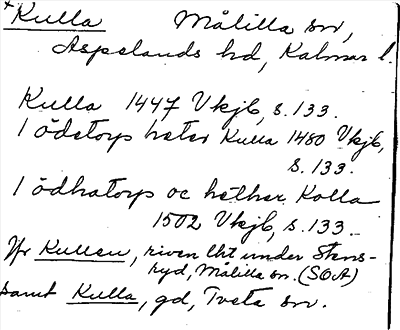 + Kulla Målilla sn,
Aspelands hd, Kalmar l.
Kulla 1447 Vkjb, s. 133.
1 ödetorp heter Kulla 1480 Vkjb,
s. 133.
1 ödhatorp oc hether Kolla
1502 Vkjb, s. 133.
Jfr Kullen, riven lht under Stens-
ryd, Målilla sn. (SOA)
samt Kulla, gd, Tveta sn.